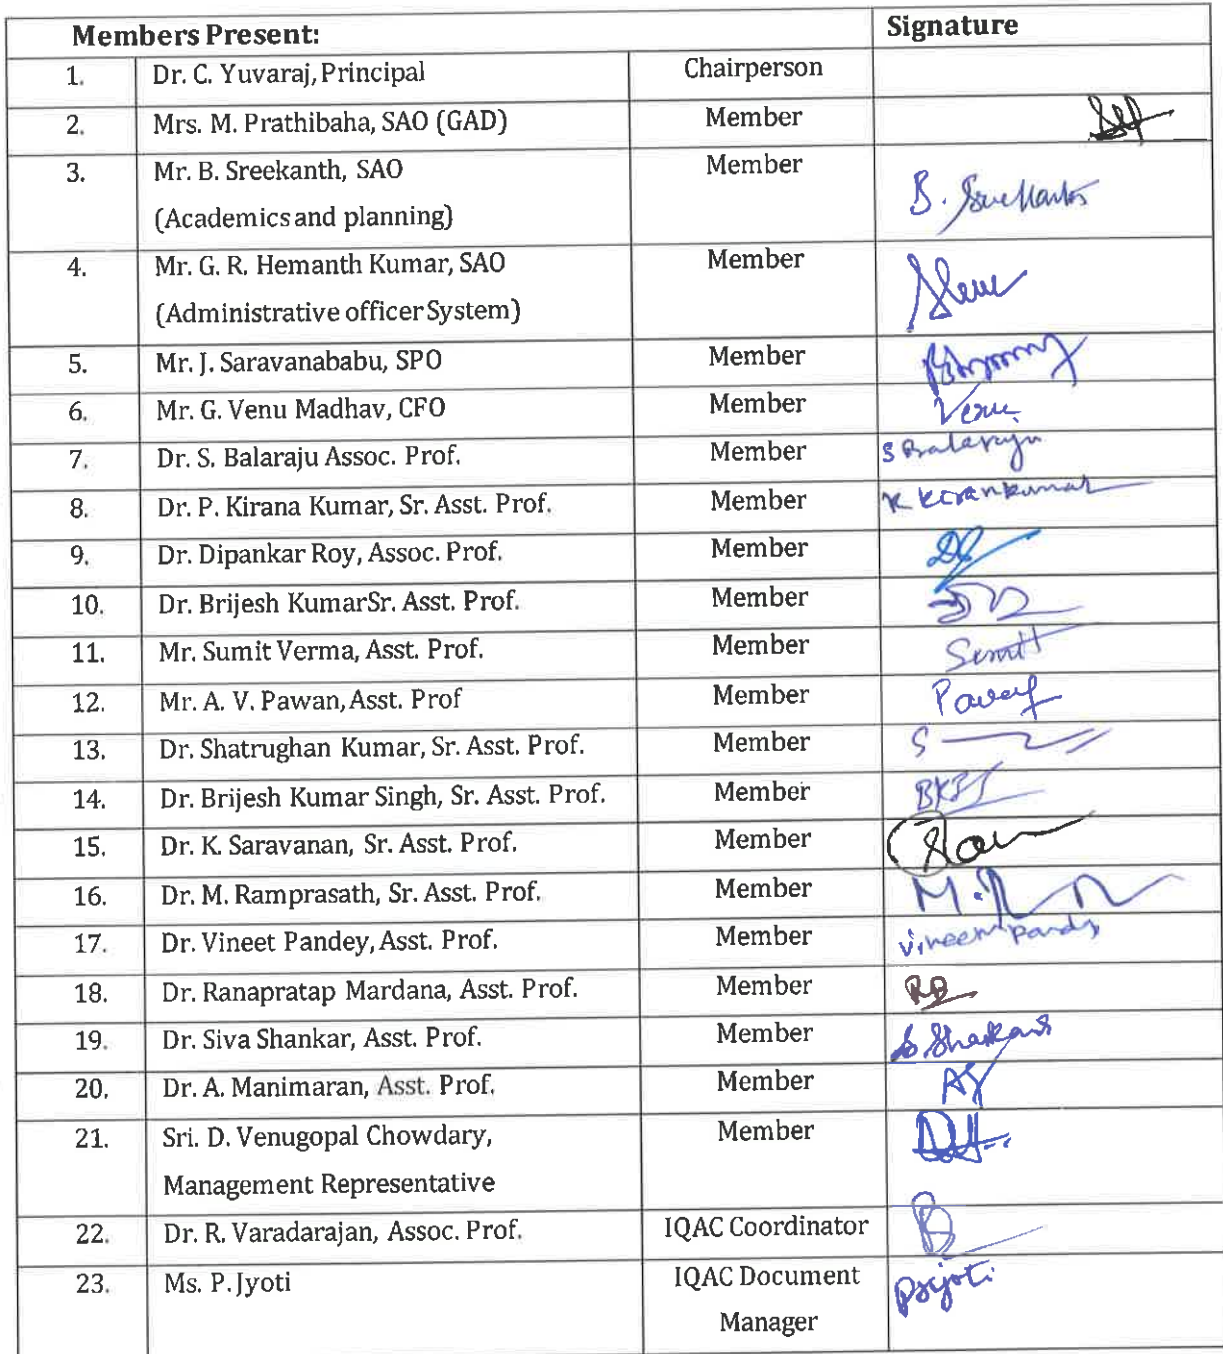 Members Present: Signature
1. Dr. C. Yuvaraj, Principal Chairperson
2. Mrs. M. Prathibaha, SAO (GAD) Member
3. Mr. B. Sreekanth, SAO Member
(Academics and planning) B. Sreekanth
4. Mr. G. R. Hemanth Kumar, SAO Member
(Administrative officer System)
5. Mr. J. Saravanababu, SPO Member
6. Mr. G. Venu Madhav, CFO Member Venu
7. Dr. S. Balaraju Assoc. Prof. Member S Balaraju
8. Dr. P. Kirana Kumar, Sr. Asst. Prof. Member K Kirankumar
9. Dr. Dipankar Roy, Assoc. Prof. Member
10. Dr. Brijesh KumarSr. Asst. Prof. Member
11. Mr. Sumit Verma, Asst. Prof. Member Sumit
12. Mr. A. V. Pawan, Asst. Prof Member
13. Dr. Shatrughan Kumar, Sr. Asst. Prof. Member
14. Dr. Brijesh Kumar Singh, Sr. Asst. Prof. Member
15. Dr. K. Saravanan, Sr. Asst. Prof. Member
16. Dr. M. Ramprasath, Sr. Asst. Prof. Member
17. Dr. Vineet Pandey, Asst. Prof. Member Vineet Pandey
18. Dr. Ranapratap Mardana, Asst. Prof. Member
19. Dr. Siva Shankar, Asst. Prof. Member S Shankar
20. Dr. A. Manimaran, Asst. Prof. Member
21. Sri. D. Venugopal Chowdary, Member
Management Representative
22. Dr. R. Varadarajan, Assoc. Prof. IQAC Coordinator
23. Ms. P. Jyoti IQAC Document P Jyoti
Manager